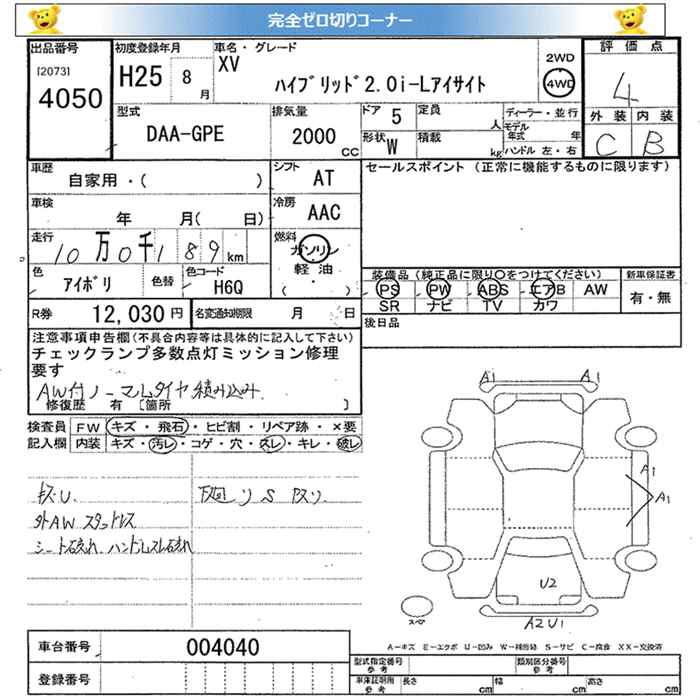 完全ゼロ切りコーナー
出品番号 初度登録年月 車名・グレード 評価点
[2073] 4050 H25 8月 XV ハイブリッド2.0i-Lアイサイト 2WD 4WD 4
型式 排気量 ドア 5 定員 人 ディーラー・並行 外装 内装
DAA-GPE 2000 cc 形状 W 積載 kg モデル年式 年 ハンドル 左・右 C B
車歴 自家用・( ) シフト AT セールスポイント (正常に機能するものに限ります)
車検 年 月( 日) 冷房 AAC
走行 10万0千189km 燃料 ガソリン 軽油・( )
色 アイボリ 色替 色コード H6Q
装備品(純正品に限り〇をつけてください) 新車保証書
PS PW ABS エアB AW 有・無
SR ナビ TV カワ
R券 12,030円 名変通知期限 月 日 後日品
注意事項申告欄(不具合内容等は具体的に記入して下さい)
チェックランプ多数点灯ミッション修理
要す
AW付ノーマルタイヤ積み込み
修復歴 有 [箇所 ]
検査員 FW キズ・飛石・ヒビ割・リペア跡・×要
記入欄 内装 キズ・汚レ・コゲ・穴・スレ・キレ・破レ
A1 A1
A1
A1
キズU. 下廻リS キズソ
外AW スタットレス
シート汚れ、ハンドルスレ汚れ
U2
スペア A2 U1
A-キズ E-エクボ U-凹み W-補修跡 S-サビ C-腐食 XX-交換済
車台番号 004040
登録番号
型式指定番号 参考 類別区分番号 参考
車庫証明用 参考 長さ cm 幅 cm 高さ cm